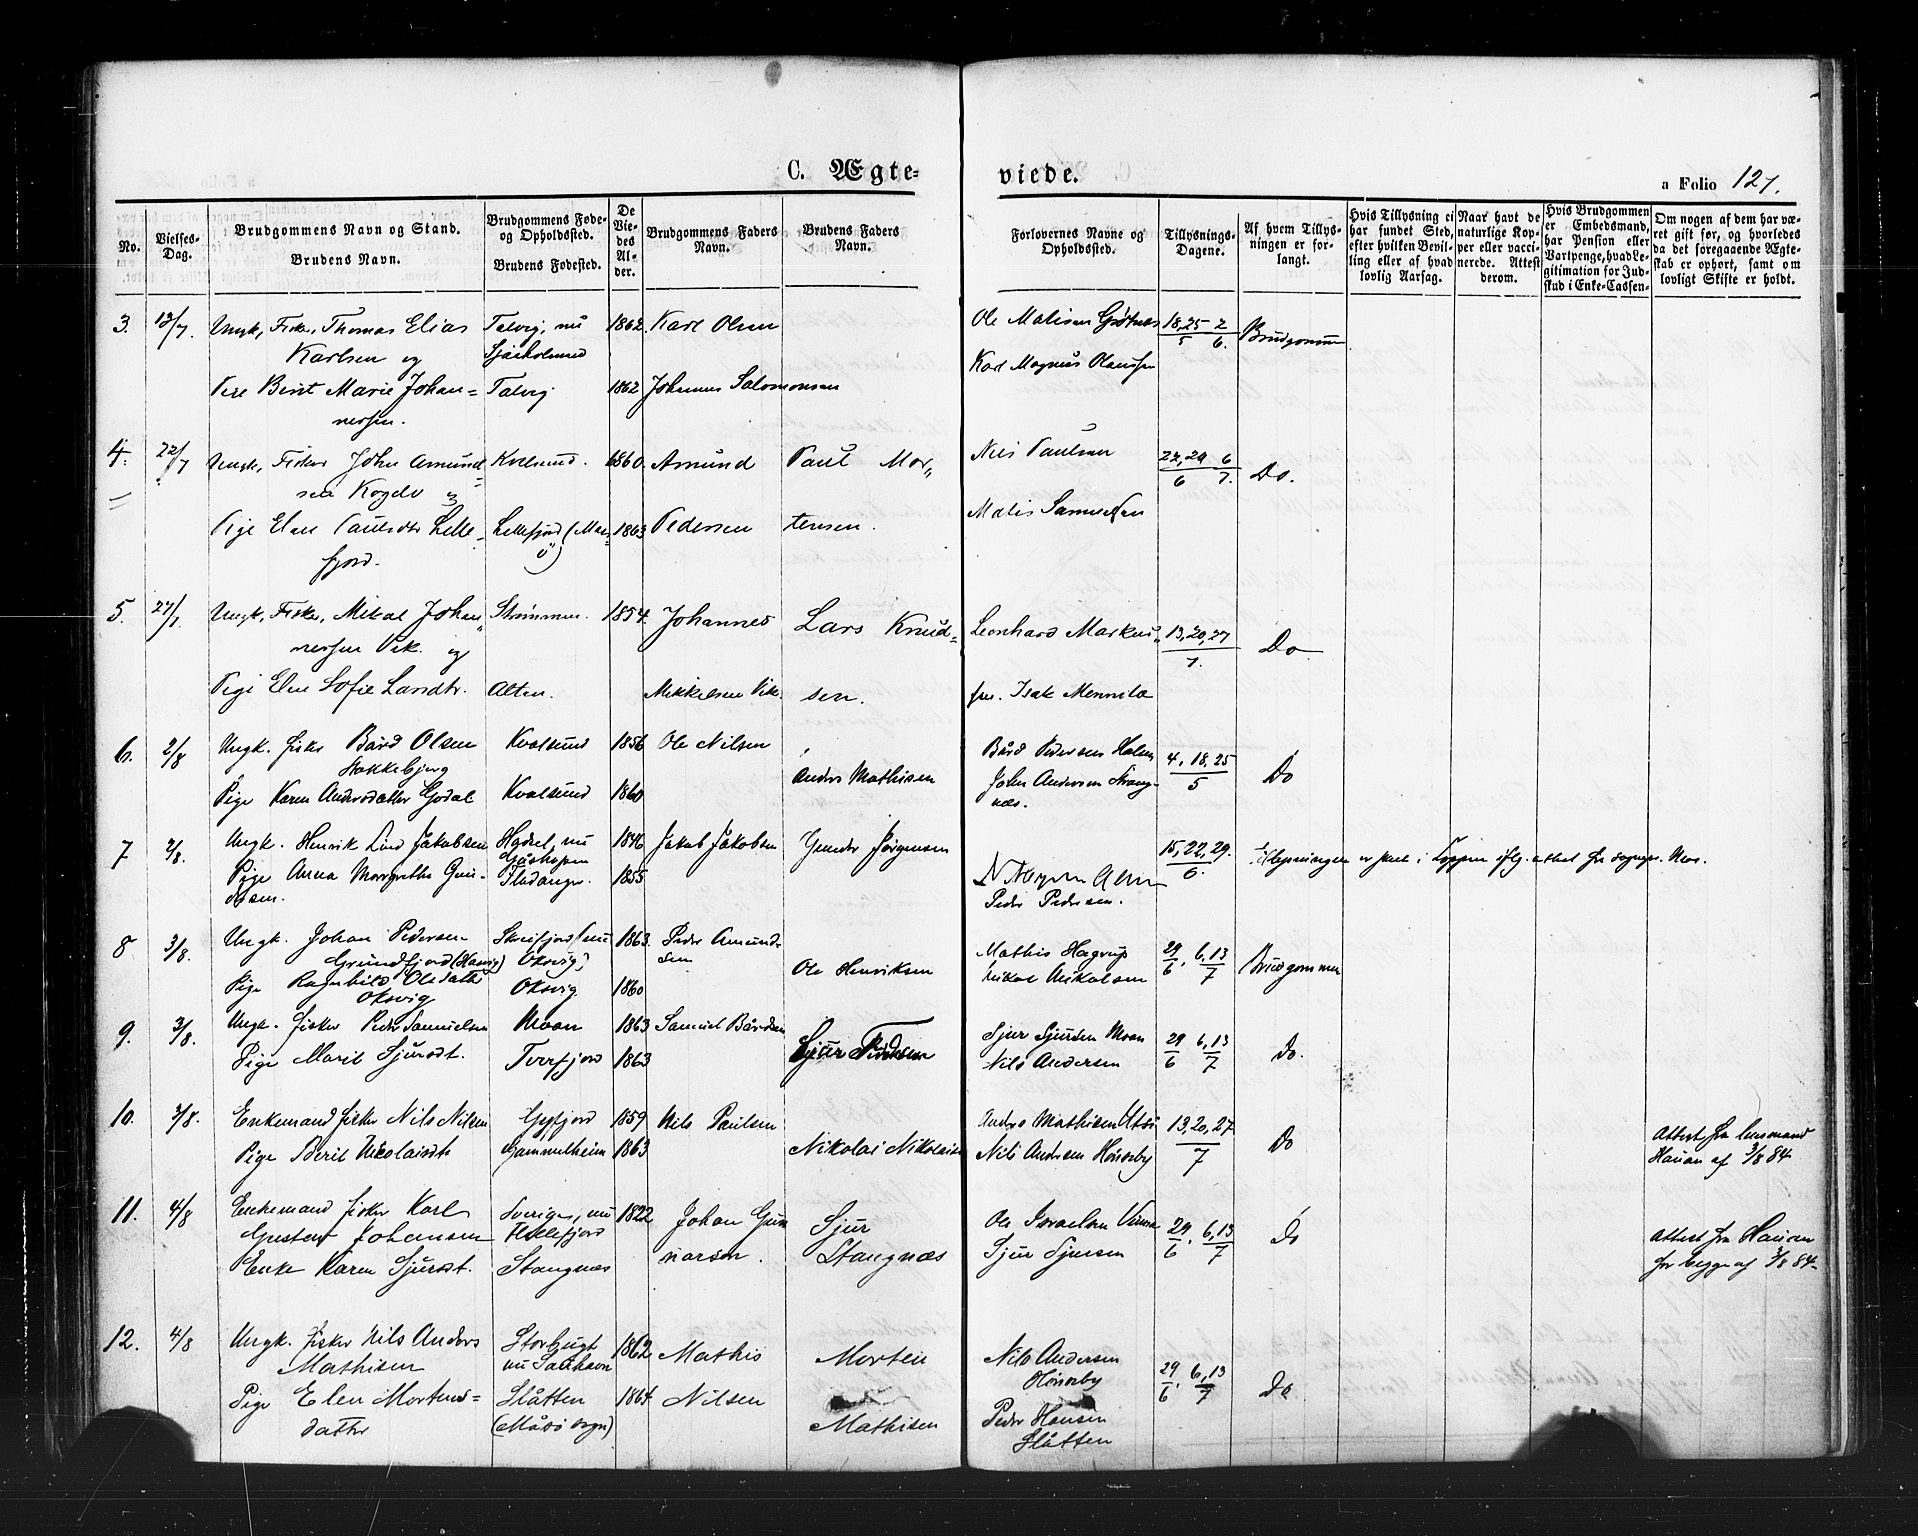 C. Ægte-
viede.
a Folio 127.
No.
Vielses-Dag.
Brudgommens Navn og Stand.
Brudens Navn.
Brudgommens Føde- og Opholdssted.
Brudens Fødested.
De Viedes Alder.
Brudgommens Faders Navn.
Brudens Faders Navn.
Forlovernes Navne og Opholdssted.
Tillysnings-Dagene.
Af hvem Tillysningen er forlangt.
Hvis Tillysning ei har fundet Sted, efter hvilken Bevilling eller af hvad lovlig Aarsag.
Naar havt de naturlige Kopper eller vaccinerede. Attest derom.
Hvis Brudgommen er Embedsmand, har Pension eller Vartpenge, hvad Legitimation for Indskud i Enke-Cassen-
Om nogen af dem har været gift før, og hvorledes da det foregaaende Ægteskab er ophørt, samt om lovligt Skifte er holdt.
3. 13/7. Ungk, Fisker, Thomas Elias Talvig, nu 1862. Karl Olsen Ole Matisen 18,25 2 Brudgommen
Karlsen og 5 6.
Karl Magnus Olaussen
Pige Berit Marie Johan= Talvig 1862 Johannes Salomonsen
nessen.
4. 22/7 Ungk, Fisker John Amund= Kvalsund. 1860. Amund Paul Mor„ Nils Paulsen 22,29 6 Do.
sen og 6 7.
Pige Elen Paulsdtr Lille= Lillefjord 1863 Pedersen tensen. Matis Samuelsen
fjord.
5. 27/7 Ungk, Fisker, Mikal Johan„ Strømmen. 1854. Johannes Lars Knud= Leonhard Markus„ 13,20,27 Do
nessen Vik. og 7.
Pige Elen Sofie Larsdtr. Alten. Mikkelsen Vik. sen. sen. Isak Mennila
6. 2/8 Ungk. fisker Bård Olsen Kvalsund 1856 Ole Nilsen Bård Pedersen 4, 18, 25 Do
Stokkebjerg 5
Pige Karen Andersdatter Kvalsund 1860 Anders Mathisen John Andersen
næs.
7 2/8. Ungk. Henrik Lind Jakobsen Hadsel, nu 1846 Jakob Jakobsen Gunder Jørgensen 15, 22, 29. Tillysningen er skeet i Loppen
6.
Pige Anna Margrethe Gun- 1855 Peder Pedersen.
dersen.
8 3/8. Ungk. Johan Pedersen nu 1863. Peder Amund- Mathis Hagrup 29 6, 13 Brudgommen
Grundfjord Oksvig) sen 6 7
Pige Ragnhild Olsdatter Oksvig 1860 Ole Henriksen Mikal Mikalsen
Oksvig
9. 3/8. Ungk. fisker Peder Samuelsen Moan 1863 Samuel Bårdsen Sjur Sjursen Moan 29 6, 13 Do.
6 7
Pige Marit Sjursdt. Tverfjord 1863 Sjur Pedersen Nils Andersen
10. 3/8. Enkemand fisker Nils Nilsen 1859 Nils Paulsen Anders Mathisen Utsi 13, 20, 27 Do
7
Pige Berit Nikolaisdtr Gammelheim 1863 Nikolai Nikolaisen Nils Andersen Hönseby
Attest fra lensmand
Hauan af 3/8 84
11. 4/8 Enkemand fisker Karl Sverige, nu 1822 Johan Gun Sjur Ole Israelsen 29 6, 13 Do
6 7
Gustav Johansen narsen. Stangnæs Sjur Sjursen
Enke Karen Sjursdt. Stangnæs
Attest fra Hauan
for begge af 3/8 84
12. 4/8 Ungk. fisker Nils Anders Storbugt 1862 Mathis Morten Nils Andersen 29 6, 13 Do
Mathisen nu Saxhavn Hönseby 6 7
Pige Elen Mortens= Slåtten 1864 Nilsen Mathisen Peder Hansen
datter (Måsö sogn) Slåtten